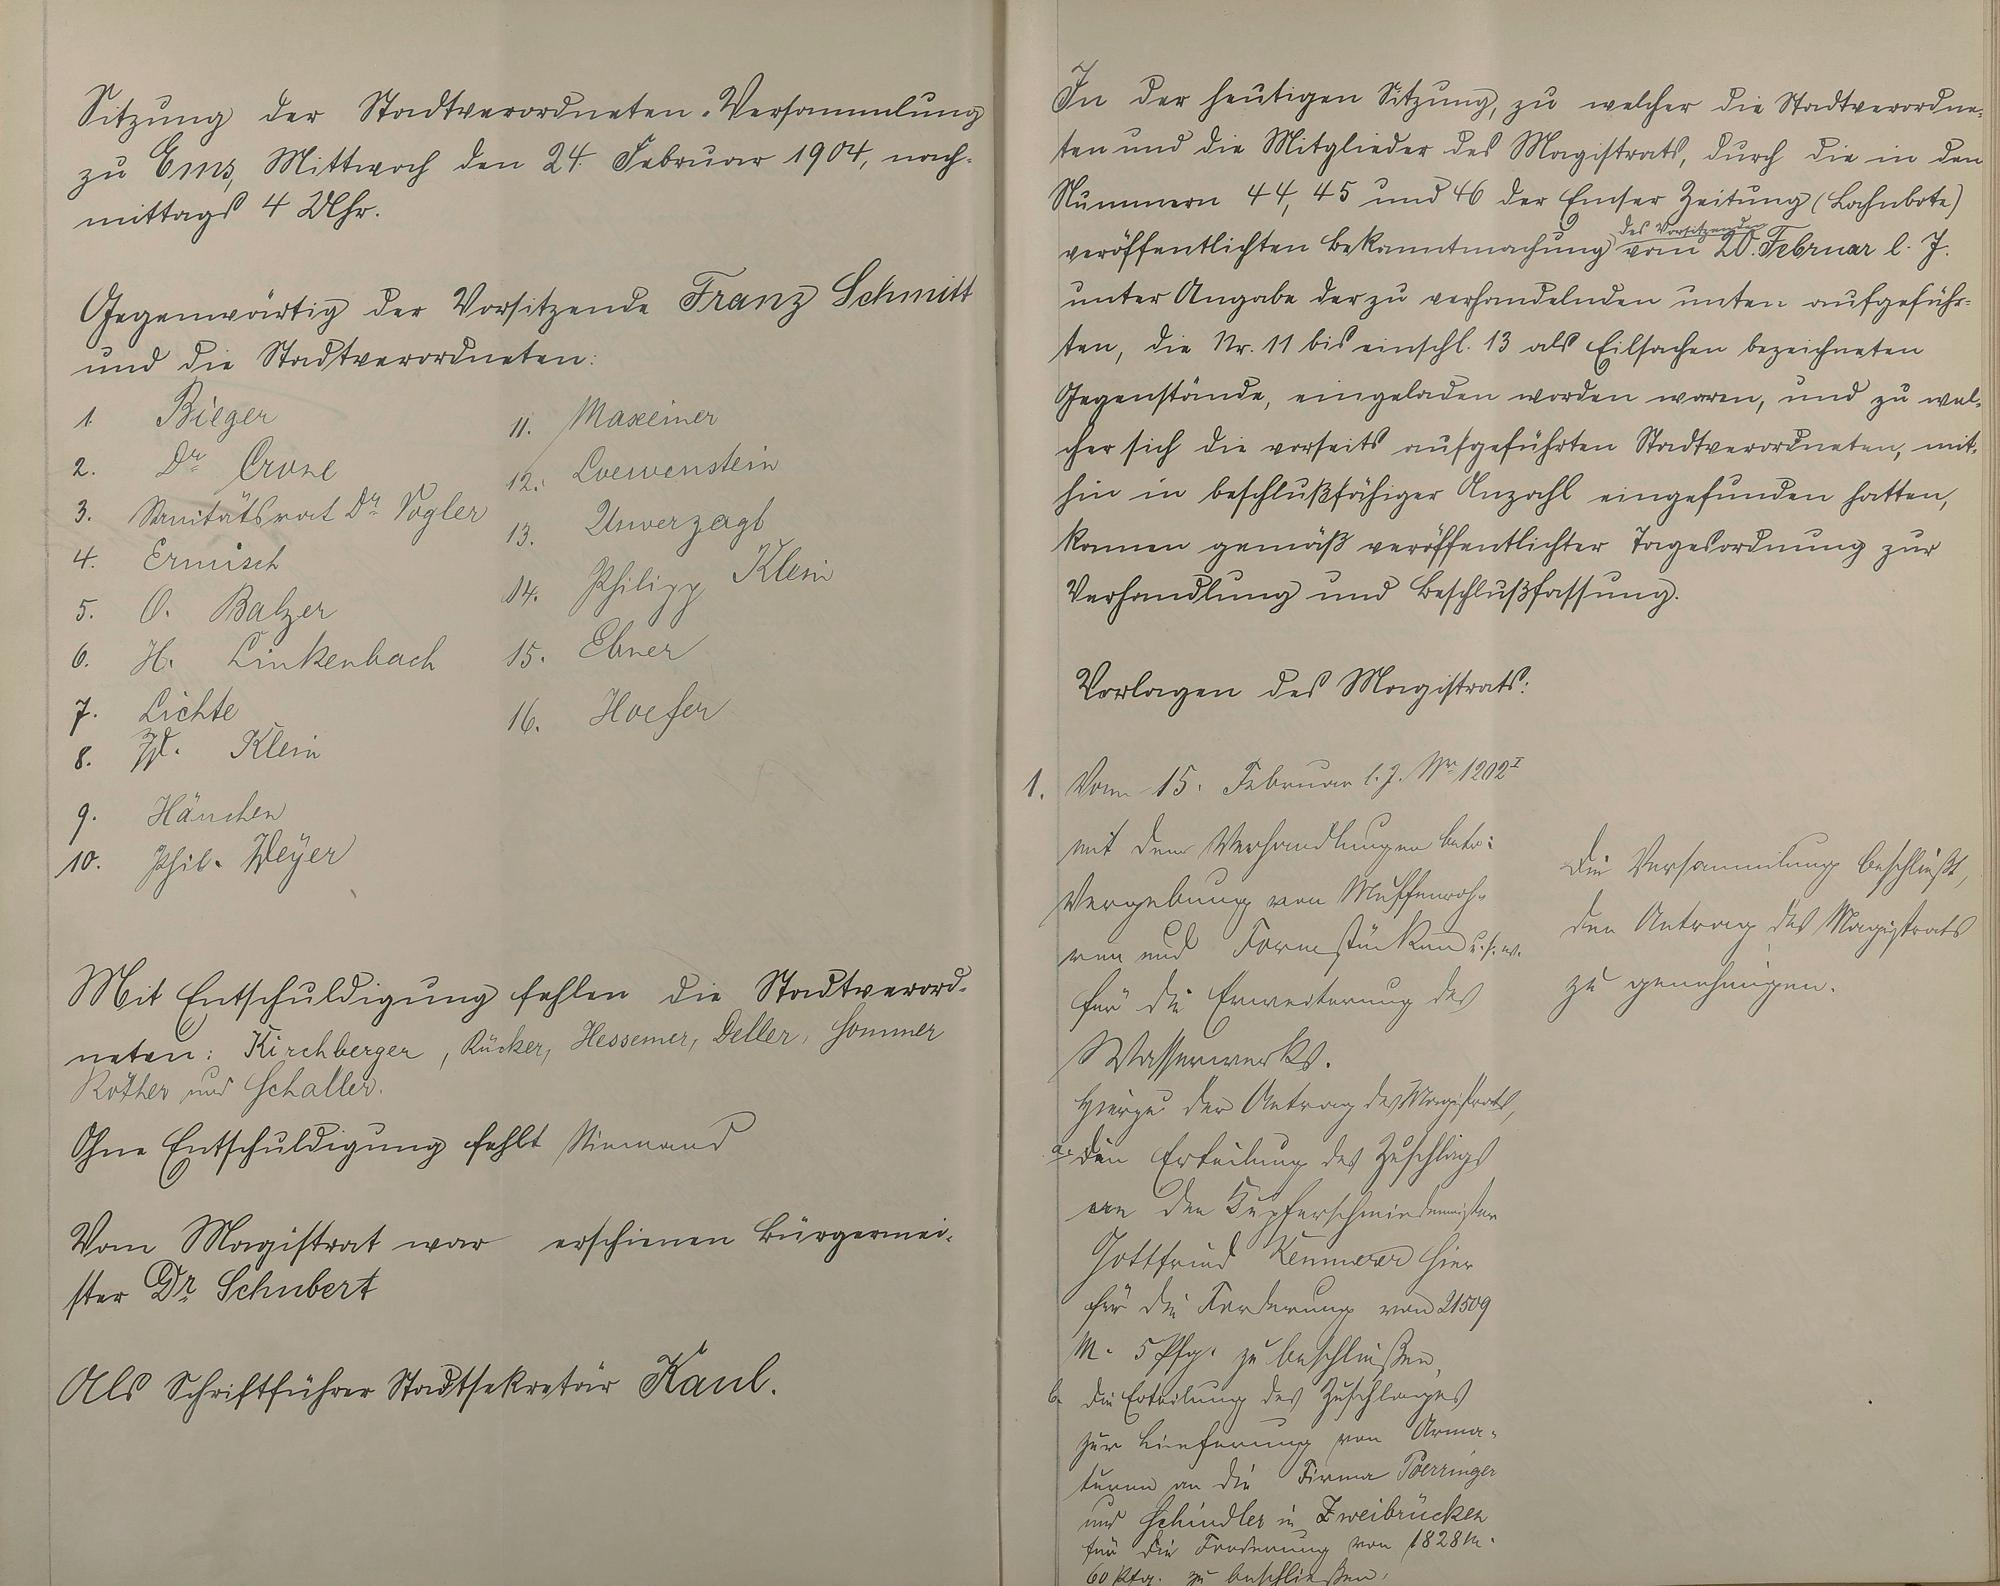 Sitzung der Stadtverordneten-Versammlung
zu Ems, Mittwoch den 24. Februar 1904, nach-
mittags 4 Uhr.
Gegenwärtig der Vorsitzende Franz Schmitt
und die Stadtverordneten:
1. Bieger
2. Dr. Crone
3. Sanitätsrat Dr. Vogler
4. Ermisch
5. O. Balzer
6. H. Linkenbach
7. Lichte
8. W. Klein
9. Hänchen
10. Phil. Weyer
11. Maxeiner
12. Loewenstein
13. Unverzagt
14. Philipp Klein
15. Ebner
16. Hoefer
Mit Entschuldigung fehlen die Stadtverord-
neten: Kirchberger, Rücker, Hessemer, Deller, Sommer
Rother und Schaller.
Ohne Entschuldigung fehlt Niemand
Vom Magistrat war erschienen Bürgermei-
ster Dr. Schubert
Als Schriftführer Stadtsekretär Kaul.
In der heutigen Sitzung, zu welcher die Stadtverordne-
ten und die Mitglieder des Magistrats, durch die in den
Nummern 44, 45 und 46 der Emser Zeitung (Lahnbote)
des Vorsitzenden
veröffentlichten Bekanntmachung vom 20. Februar l. J.
unter Angabe der zu verhandelnden unten aufgeführ-
ten, die Nr. 11 bis einschl. 13 als Eilsachen bezeichneten
Gegenstände, eingeladen worden waren, und zu wel-
cher sich die vorseits aufgeführten Stadtverordneten, mit-
hin in beschlußfähiger Anzahl eingefunden hatten,
kamen gemäß veröffentlichter Tagesordnung zur
Verhandlung und Beschlußfassung.
Vorlagen des Magistrats:
1. Vom 15. Februar l. J. Nr. 1202 I
mit den Verhandlungen betr:
Vergebung von Muffenroh-
ren und Formstücken u.s.w.
für die Erweiterung des
Wasserwerks.
Hierzu der Antrag des Magistrats,
a. den Erteilung des Zuschlags
an den Kupferschmiedemeister
Gottfried Kemmerer hier
für die Forderung von 21509
M. 5 Pfg. zu beschließen,
b. die Erteilung des Zuschlages
zur Lieferung von Arma-
turen an die Firma Boerringer
und Schindler in Zweibrücken
für die Forderung von 1828 M.
60 Pfg. zu beschließen,
Die Versammlung beschließt,
den Antrag des Magistrats
zu genehmigen.